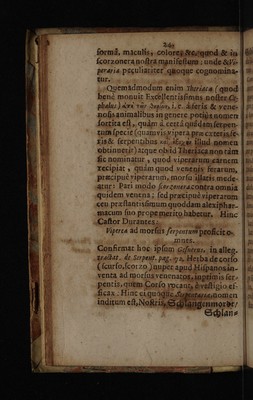 244
formâ, maculis, colore, &c. quod & in
scorzonera nostra manifestum: unde & Vi-
peraria peculiariter quoque cognomina-
tur.
Quemadmodum enim Theriaca (quod
benè monuit Excellentissimus noster Ce-
phalus) ἀπὸ τῶν θηρίων, i.e. à feris & vene-
nosis animalibus in genere potiùs nomen
sortita est, quàm à certâ quâdam serpen-
tum specie (quamvis vipera præ cæteris fe-
ris & serpentibus illud nomen
obtinuerit) atque obid Theriaca non tàm
sic nominatur, quod viperarum carnem
recipiat, quàm quod venenis ferarum,
præcipuè viperarum, morsu illatis mede-
atur: Pari modo scorzonera contra omnia
quidem venena; sed præcipuè viperarum
ceu præstantissimum quoddam alexiphar-
macum suo propè merito habetur. Hinc
Castor Durantes:
Viperæ ad morsus serpentum proficit o-
mnes.
Confirmat hoc ipsum Gesnerus, in alleg.
tractat. de Serpent. pag. Herba de corso
(scurso, scorzo) nuper apud Hispanos in-
venta ad morsus venenatos, inprimis ser-
pentis, quem Corso vocant, investigio ef-
ficax. Hinc ei quoque Serpentariæ nomen
inditum est, Nostris, Schlangenmord /
Schlan-